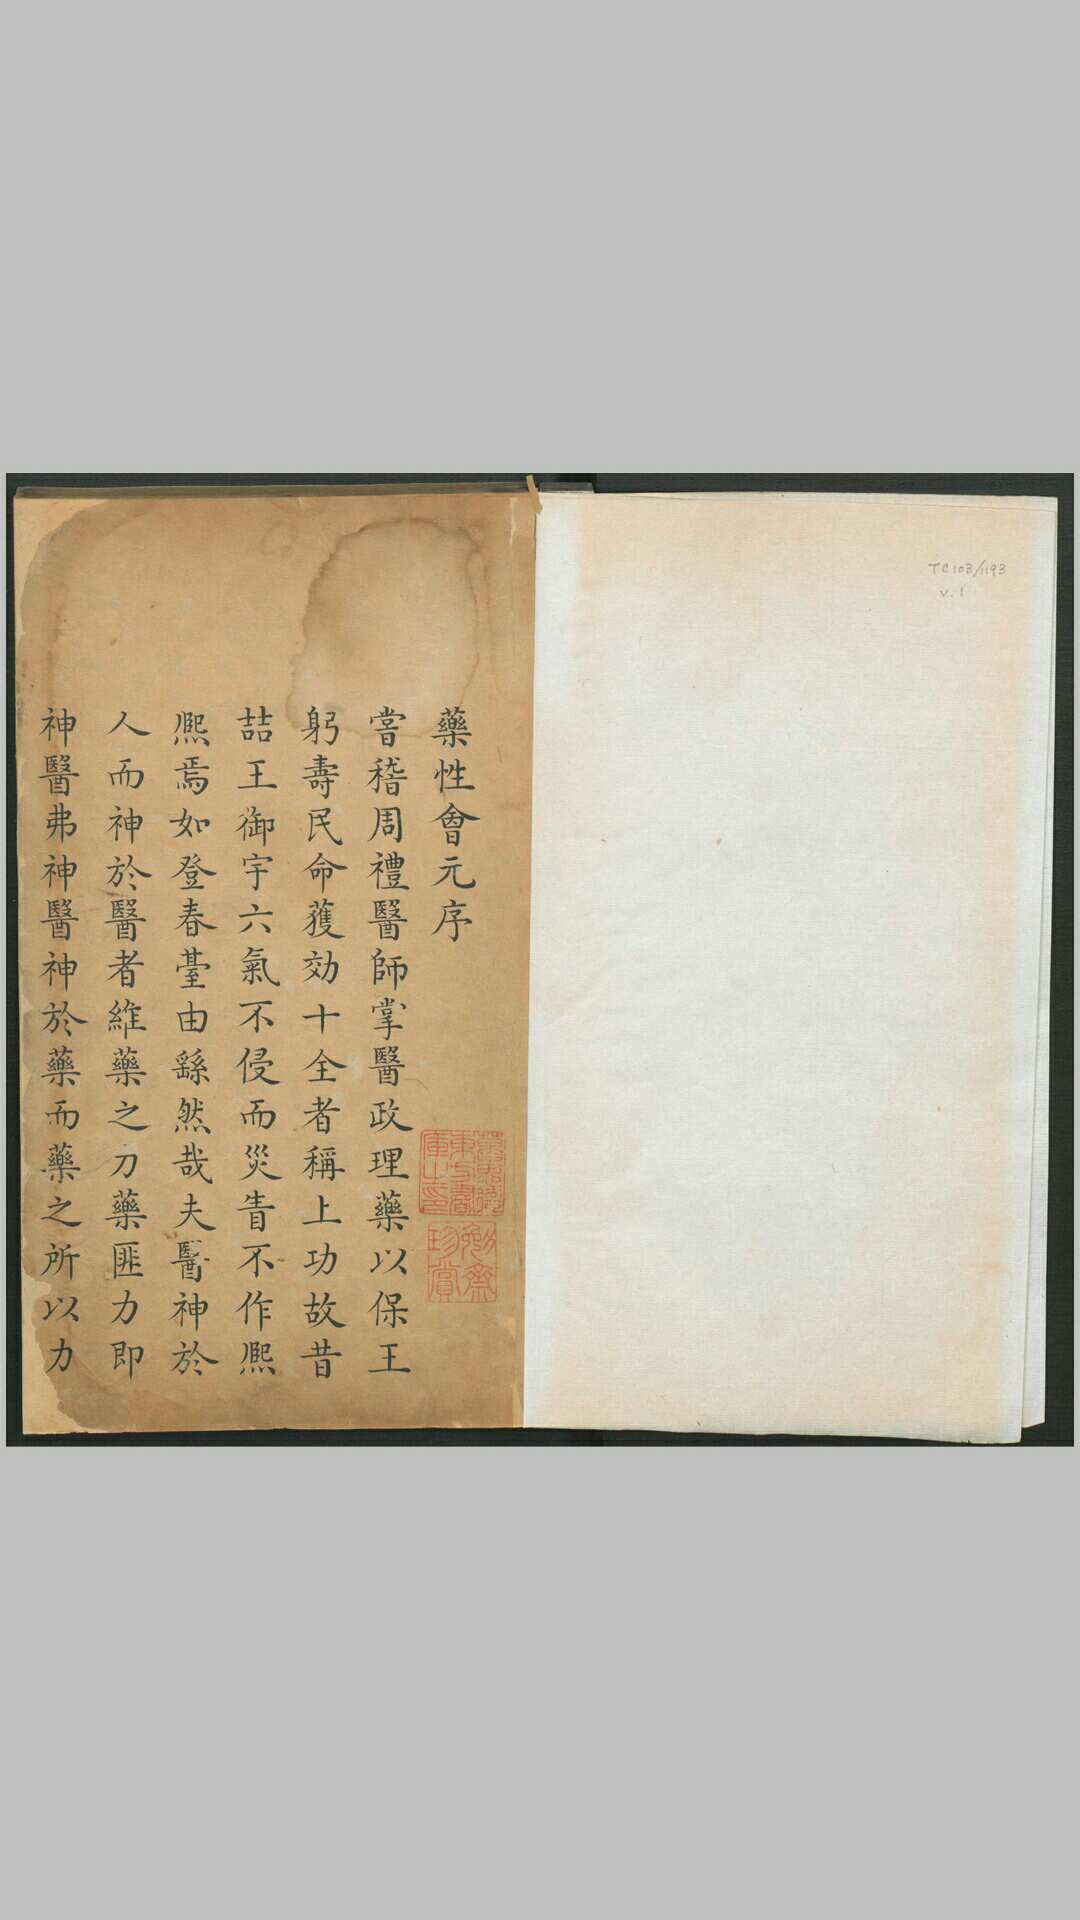 TC103/1193
v.1
藥性會元序
嘗稽周禮醫師掌醫政理藥以保王
躬壽民命獲効十全者稱上功故昔
喆王御宇六氣不侵而災眚不作熈
熈焉如登春臺由繇然哉夫醫神於
人而神於醫者維藥之力藥匪力即
神醫弗神醫神於藥而藥之所以力
葛思德
東方書
庫之印
勉齋
珍賞